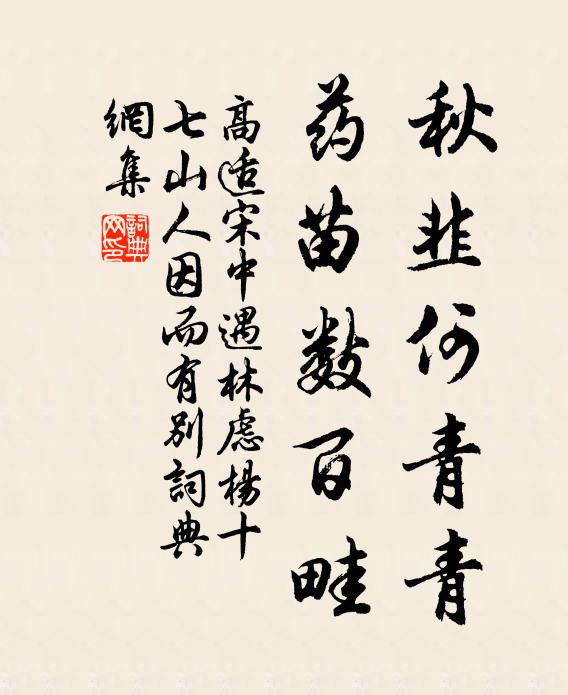 秋韭何青青
药苗数百畦
高适宋中遇林虑杨十
七山人因而有别词典
網集
詞典網印